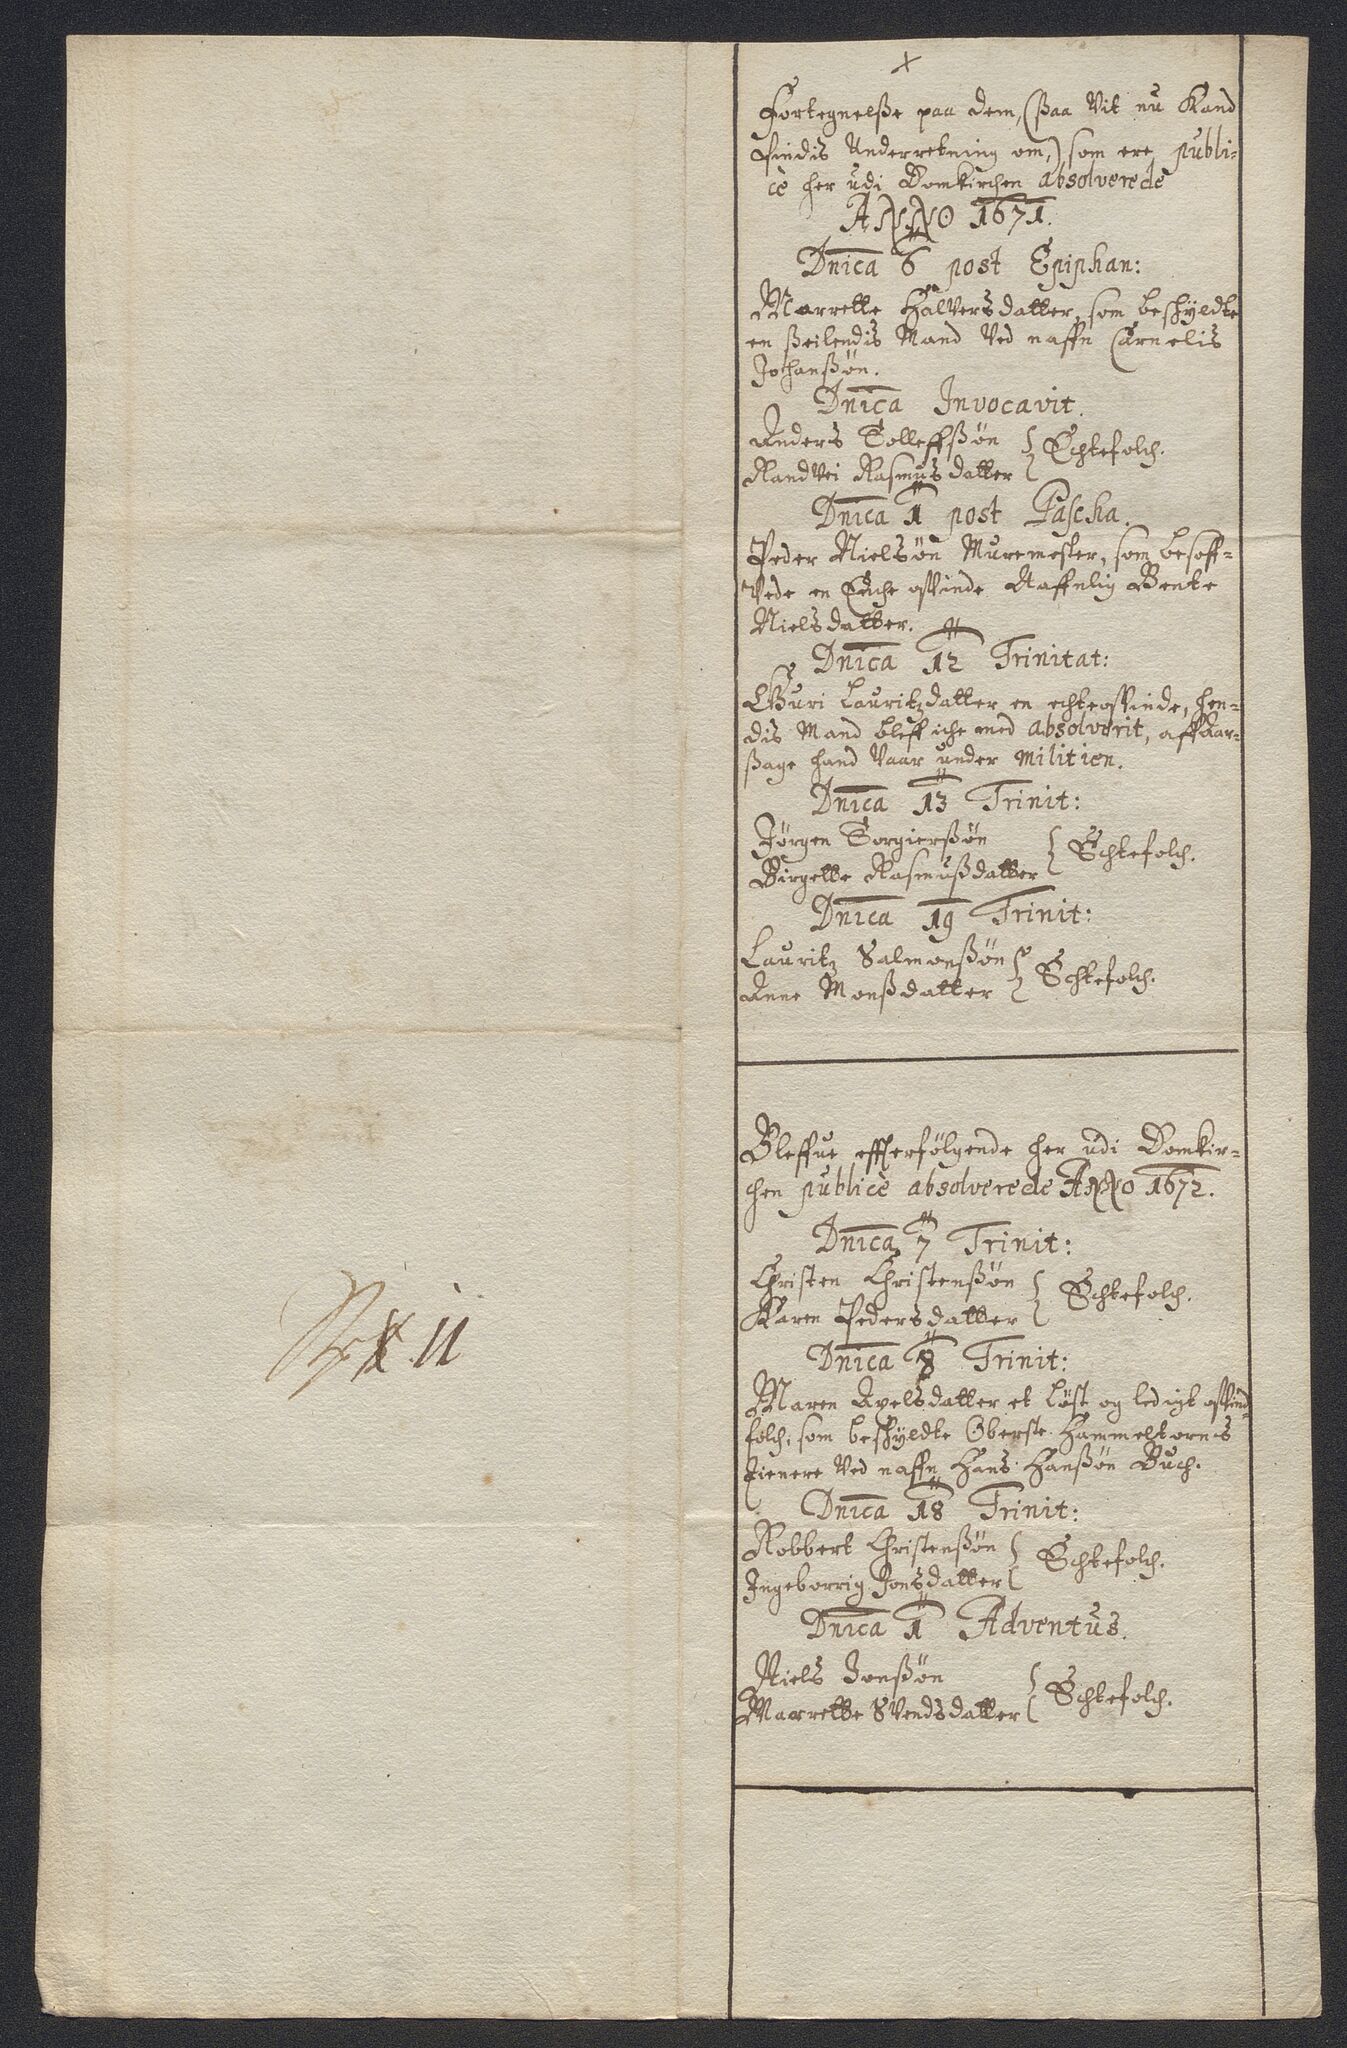 Fortegnelsse paa dem, (ssaa vit nu Kand
findis Underretning om,) som ere publi-
cè her udi Domkirchen absolverede
ANNO 1671.
Dnica 6 post Epiphan:
Marrette Halversdatter, som beskyldte
en sseilendis Mand ved naffn Carnelis
Johanssøn.
Dnica Invocavit.
Anders Tolleffssøn
Randvei Rasmusdatter } Echtefolch.
Dnica 1 post Pascha.
Peder Nielsøn Muremester, som besoff-
vede en Enche qvinde Naffnlig Bente
Nielsdatter.
Dnica 12 Trinitat:
Guri Lauritzdatter en echteqvinde, hen-
dis Mand bleff iche med absolverit, aff Aar-
ssage hand vaar under militien.
Dnica 13 Trinit:
Jørgen Torgierssøn
Birgette Rasmussdatter } Echtefolch.
Dnica 19 Trinit:
Lauritz Salmonssøn
Anne Monssdatter } Echtefolch.
Bleffue effterfølgende her udi Domkir-
chen publicè absolverede ANNO 1672.
Dnica 7 Trinit:
Christen Christenssøn
Karen Pedersdatter } Echtefolch.
Dnica 8 Trinit:
Maren Axelsdatter et løst og ledigt qvind-
folch, som beskyldte Oberste Hammeltorns
tienere ved naffn Hans Hanssøn Buch.
Dnica 18 Trinit:
Robbert Christenssøn
Ingeborrig Jonsdatter } Echtefolch.
Dnica 1 Adventus.
Niels Jonssøn
Marrette Svendsdatter } Echtefolch.
11